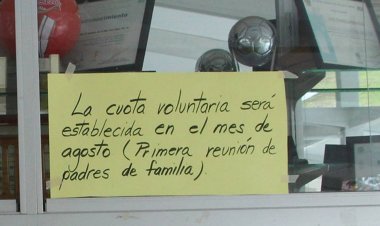 reconocimiento
La cuota voluntaria será
establecida en el mes de
agosto (Primera reunión de
padres de familia).